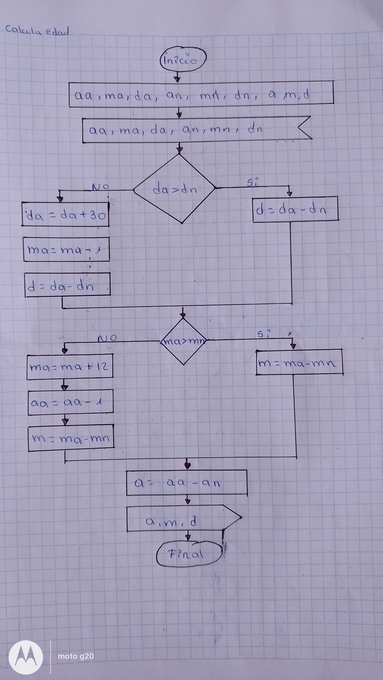 Calcula edad
Inicio
aa, ma, da, an, mn, dn, a, m, d
aa, ma, da, an, mn, dn
da>dn
NO
Si
da = da+30
d = da-dn
ma = ma-1
d = da-dn
ma>mn
NO
Si
ma = ma+12
m = ma-mn
aa = aa-1
m = ma-mn
a = aa-an
a, m, d
Final
moto g20